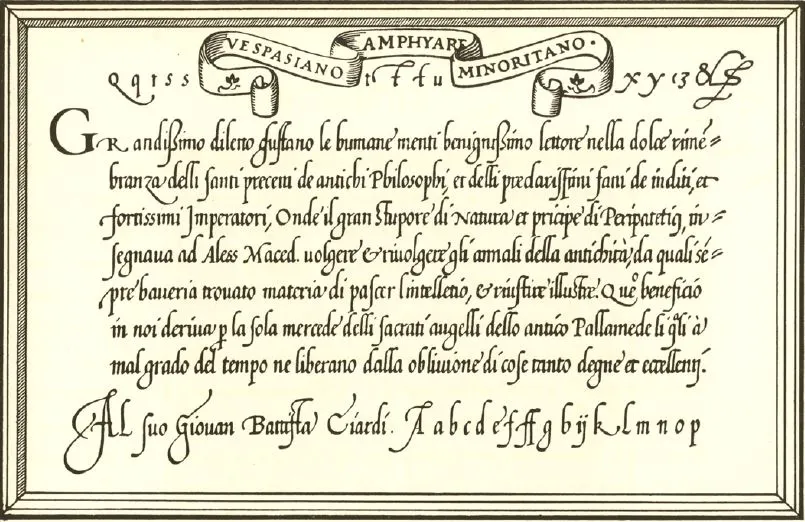 VESPASIANO AMPHYARE MINORITANO.
Q q r s s t t t u x y z 3 &
GR andißimo diletto gustano le humane menti benignißimo lettore nella dolce rimē=
branza delli santi precetti de antichi Philosophi, et delli preclarissimi fatti de inditi, et
fortissimi Imperatori, Onde il gran Stupore di Natura et prīcipe di Peripatetici, in=
segnaua ad Aless Maced. uolgere & riuolgere gli annali della antichità, da quali sē=
pre haueria trouato materia di pascer l'intelletto, & riuscire illustre. Que beneficio
in noi deriua ꝑ la sola mercede delli sacrati augelli dello antico Pallamede li q̄li à
mal grado del tempo ne liberano dalla obliuione di cose tanto degne et eccellenti.
AL suo Giouan Battista Ciardi. A a b c d e f ff g h ij k l m n o p